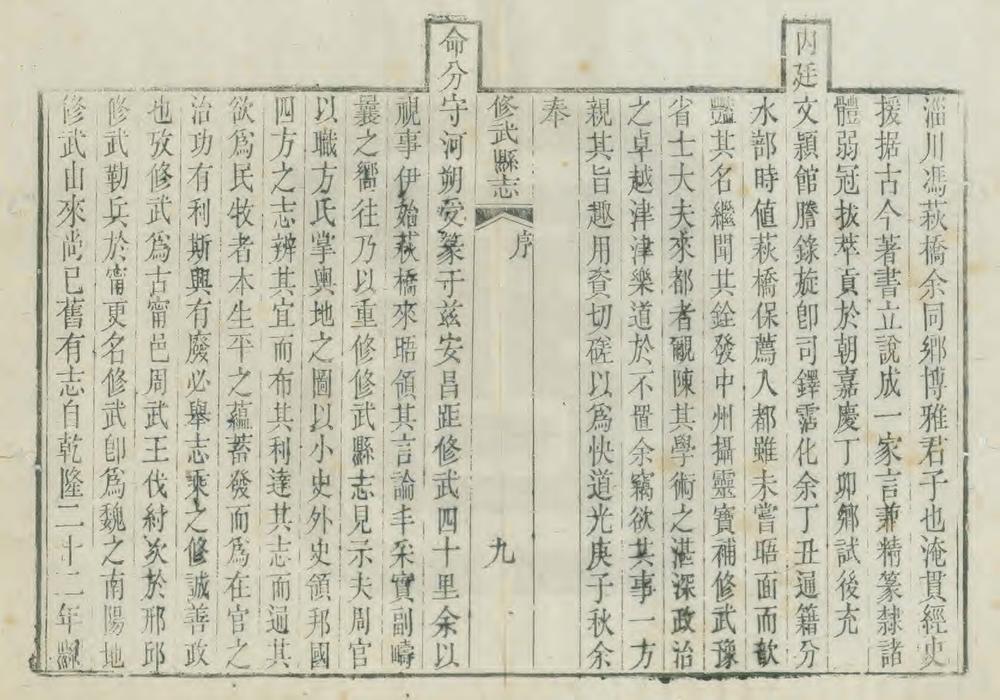 淄川馮萩橋余同鄉博雅君子也淹貫經史
援据古今著書立說成一家言兼精篆隸諸
體弱冠拔萃貢於朝嘉慶丁卯鄉試後充
內廷文穎館謄錄旋卽司鐸霑化余丁丑通籍分
水部時値萩橋保薦入都雖未嘗晤面而歆
豔其名繼聞其銓發中州攝靈寶補修武豫
省士大夫來都者覼陳其學術之湛深政治
之卓越津津樂道於不置余竊欲共事一方
親其旨趣用資切磋以爲快道光庚子秋余
奉
修武縣志
序
九
命分守河朔受篆于茲安昌距修武四十里余以
視事伊始萩橋來晤領其言論丰采實副疇
曩之嚮往乃以重修修武縣志見示夫周官
以職方氏掌輿地之圖以小史外史領邦國
四方之志辨其宜而布其利達其志而通其
欲爲民牧者本生平之蘊蓄發而爲在官之
治功有利斯興有廢必舉志乘之修誠善政
也攷修武爲古甯邑周武王伐紂次於邢邱
修武勒兵於甯更名修武卽爲魏之南陽地
修武山來尚已舊有志自乾隆二十二年